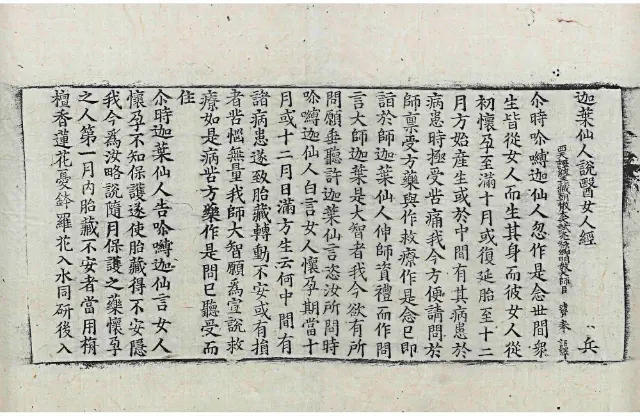 迦葉仙人說醫女人經 兵
西天譯經三藏朝大夫試光祿卿明教大師臣 法賢 奉 詔譯
尒時嚩迦仙人忽作是念世間眾
生皆從女人而生其身而彼女人從
初懷孕至滿十月或復延胎至十二
月方始產生或於中間有其病患於
病患時極受苦痛我今方便請問於
師禀受方藥與作救療作是念已即
詣於師迦葉仙人伸師資禮而作問
言大師迦葉是大智者我今欲有所
問願垂聽許迦葉仙言恣汝所問時
嚩迦仙人白言女人懷孕期當十
月或十二月日滿方生云何中間有
諸病患遂致胎藏轉動不安或有損
者苦惱無量我師大智願為宣說救
療如是病苦方藥作是問已聽受而
住
尒時迦葉仙人告嚩迦仙言女人
懷孕不知保護遂使胎藏得不安隱
我今為汝略說隨月保護之藥懷孕
之人第一月內胎藏不安者當用栴
檀香蓮花憂鉢羅花入水同研後入